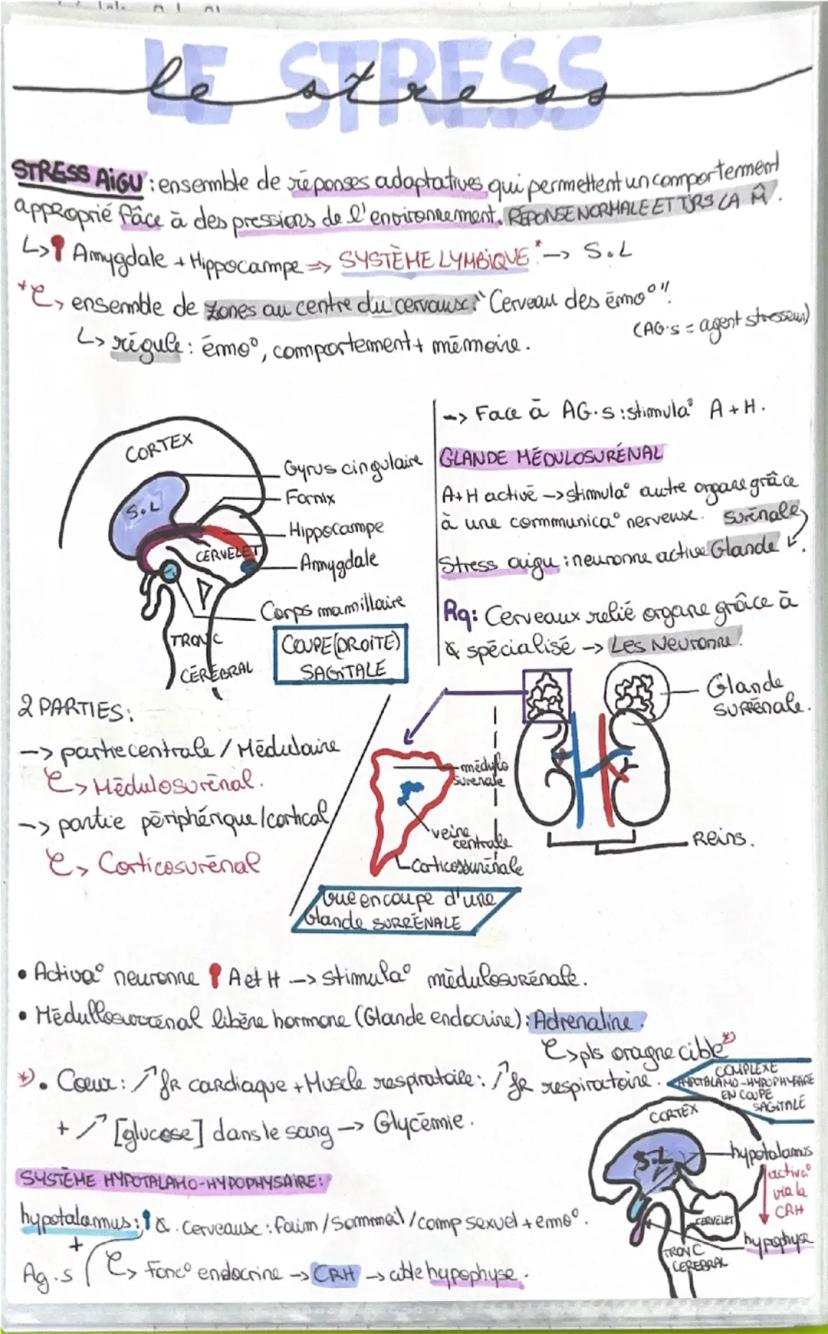 LE STRESS
le stress
STRESS AIGU : ensemble de réponses adaptatives qui permettent un comportement
approprié fâce à des pressions de l'environnement. RÉPONSE NORMALE ET TJRS LA M̂.
↳ Amygdale + Hippocampe => SYSTÈME LYMBIQUE* -> S.L
* ↳ ensemble de zones au centre du cerveaux : "Cerveau des émo°".
(AG.s = agent stresseur)
↳ régule : émo°, comportement + mémoire.
CORTEX
S.L
CERVELET
TRONC
CÉRÉBRAL
Gyrus cingulaire
Fornix
Hippocampe
Amygdale
Corps mamillaire
COUPE (DROITE)
SAGITALE
-> Face à AG.s : stimula° A + H.
GLANDE MÉDULOSURÉNAL
A+H activé -> stimula° autre organe grâce
à une communica° nerveuse.
Surénale
Stress aigu : neuronne active Glande
Rq: Cerveaux relié organe grâce à
& spécialisé -> Les Neuronne.
Glande
SURRÉNALE.
Reins.
2 PARTIES :
-> partie centrale / Médulaire
↳ Médulosurénal.
-> partie périphérique / cortical
↳ Corticosurénal
médulo
surenale
veine
centrale
Corticossurénale
Vue en coupe d'une
Glande SURRÉNALE
• Activa° neuronne A et H -> stimula° médulosurénale.
• Médullosurrénal libère hormone (Glande endocrine) : Adrenaline.
↳ pls oragne cible*
*. Cœur : ↗ fR cardiaque + Muscle respiratoire : ↗ fR respiratoire.
+ ↗ [glucose] dans le sang -> Glycémie.
COMPLEXE
HYPOTALAMO-HYPOPHYSAIRE
EN COUPE
SAGITALE
CORTEX
S.L
CERVELET
TRONC
CÉREBRAL
hypotalamus
activa°
via la
CRH
hypophyse
SYSTÈME HYPOTALAMO-HYPOPHYSAIRE :
hypotalamus : & cerveause : faim / Sommeil / comp sexuel + emo°.
+
Ag.s ↳ Fonc° endocrine -> CRH -> cible hypophyse.